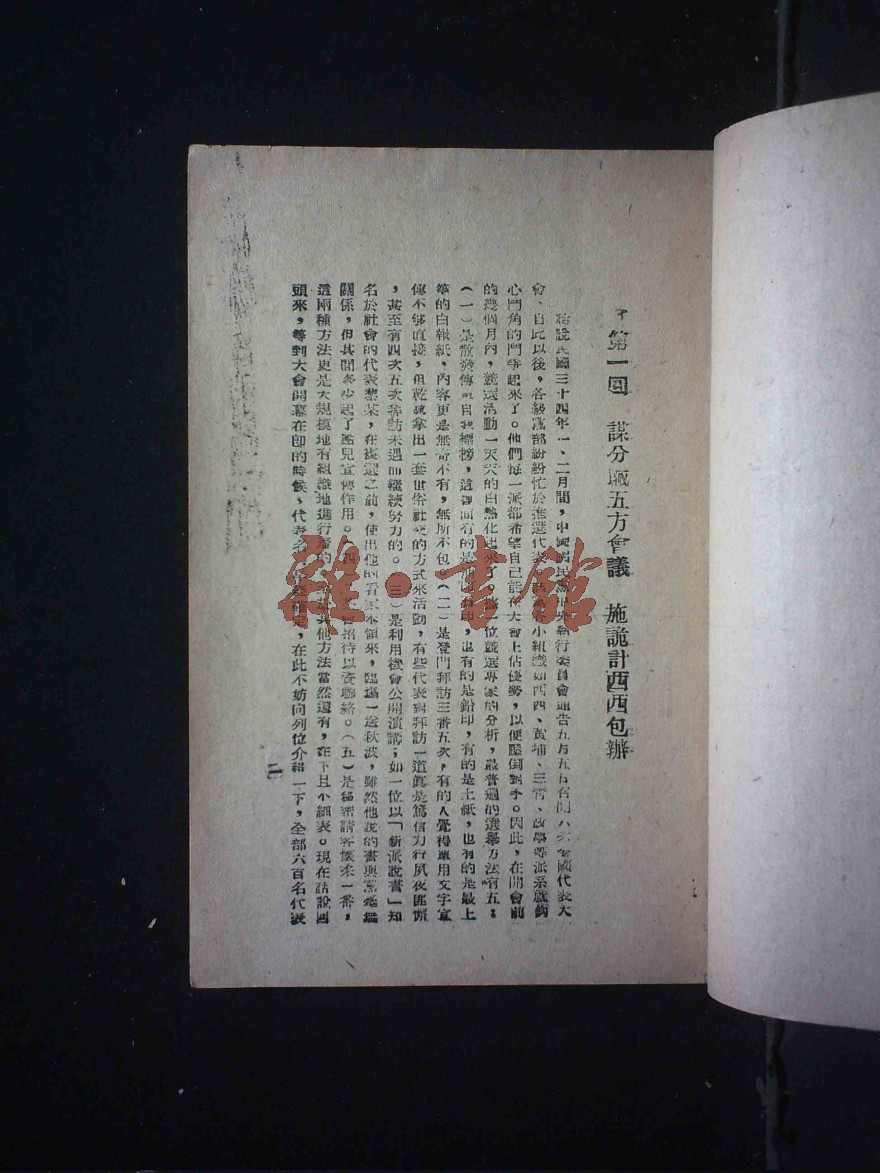 第一回 謀分贓五方會議 施詭計西西包辦
話說民國三十四年一、二月間，中國國民黨中央執行委員會通告五月五日召開六次全國代表大
會，自此以後，各級黨部紛紛忙於推選代表，小組織如西西、黃埔、三青、政學等派系就鈎
心鬥角的鬥爭起來了。他們每一派都希望自己能在大會上佔優勢，以便壓倒對手。因此，在開會前
的幾個月內，競選活動一天天的白熱化起來了。據一位競選專家的分析，最普遍的選舉方法有五：
（一）是散發傳單自我標榜，這裡面有的是油印，也有的是鉛印，有的是土紙，也有的是最上
等的白報紙，內容更是無奇不有，無所不包。（二）是登門拜訪三番五次，有的人覺得單用文字宣
傳不够直接，但乾脆拿出一套世俗社交的方式來活動，有些代表對拜訪一道眞是篤信力行夙夜匪懈
，甚至有四次五次拜訪未遇而繼續努力的。（三）是利用機會公開演講；如一位以「新派說書」知
名於社會的代表黎某，在複選之前，使出他的看家本領來，臨場一送秋波，雖然他說的書與黨毫無
關係，但其間多少起了點兒宣傳作用。（四）招待以資聯絡。（五）是秘密請客懷柔一番，
這兩種方法更是大規模地有組織地進行着的，其他方法當然還有，在下且不細表。現在話說回
頭來，等到大會開幕在即的時候，代表名，在此不妨向列位介紹一下，全部六百名代表
二
雜·書館